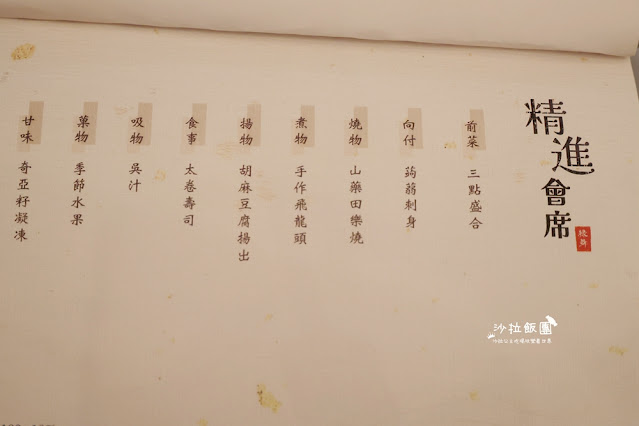 精進會席
綠舞
前菜 三點盛合
向付 蒟蒻刺身
燒物 山藥田樂燒
煮物 手作飛龍頭
揚物 胡麻豆腐揚出
食事 太卷壽司
吸物 吳汁
菓物 季節水果
甘味 奇亞籽凝凍
沙拉飯團